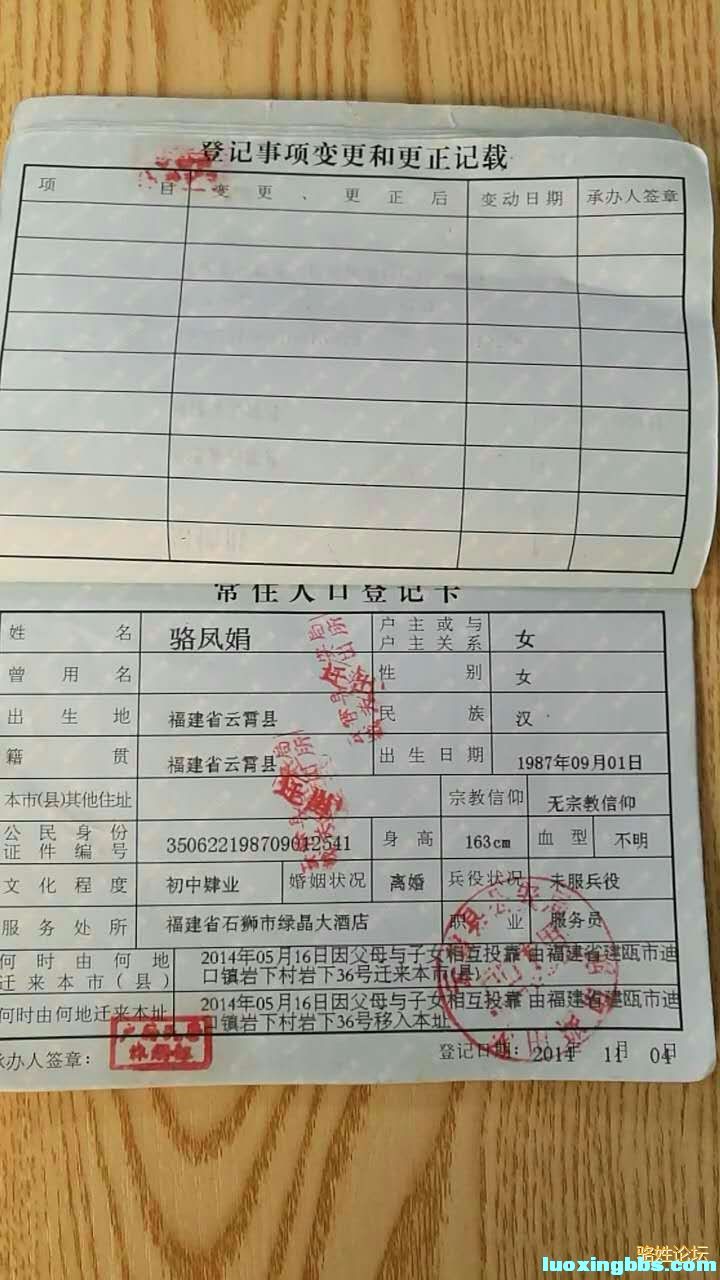 登记事项变更和更正记载
项 目 变更、更正后 变动日期 承办人签章
常住人口登记卡
姓名 骆凤娟 户主或与户主关系 女
曾用名 性别 女
出生地 福建省云霄县 民族 汉
籍贯 福建省云霄县 出生日期 1987年09月01日
本市(县)其他住址 宗教信仰 无宗教信仰
公民身份证件编号 350622198709012541 身高 163cm 血型 不明
文化程度 初中肄业 婚姻状况 离婚 兵役状况 未服兵役
服务处所 福建省石狮市绿晶大酒店 职业 服务员
何时由何地迁来本市(县) 2014年05月16日因父母与子女相互投靠 由福建省建瓯市迪口镇岩下村岩下36号迁来本市(县)
何时由何地迁来本址 2014年05月16日因父母与子女相互投靠 由福建省建瓯市迪口镇岩下村岩下36号移入本址
承办人签章: 登记日期: 2014年 11月 04日
骆姓论坛
luoxingbbs.com